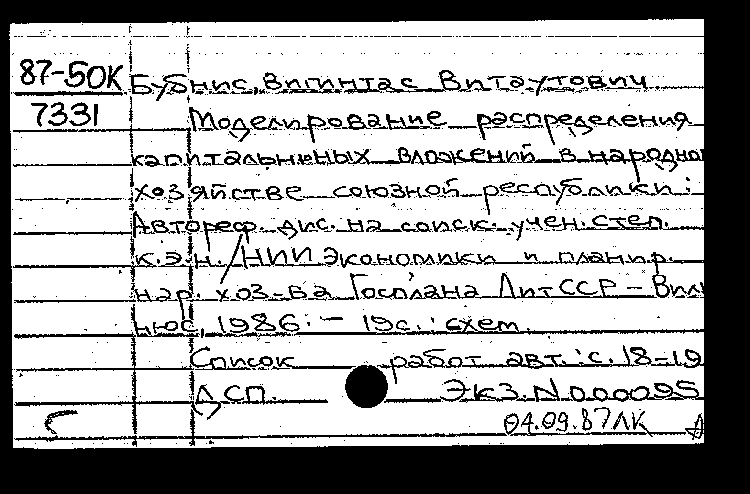 87-50К Бубнис, Вигинтас Витаутович
7331 Моделирование распределения
капитальнывных вложений в народно
хозяйстве союзной республики:
Автореф. дис. на соиск. учен. степ.
к.э.н. / НИИ экономики и планир.
нар. хоз-ва Госплана ЛитССР - Виль
нюс, 1986. - 19с.: схем.
Список работ авт.: с. 18-19
ДСП. Экз. N000095
04.09.87ЛК